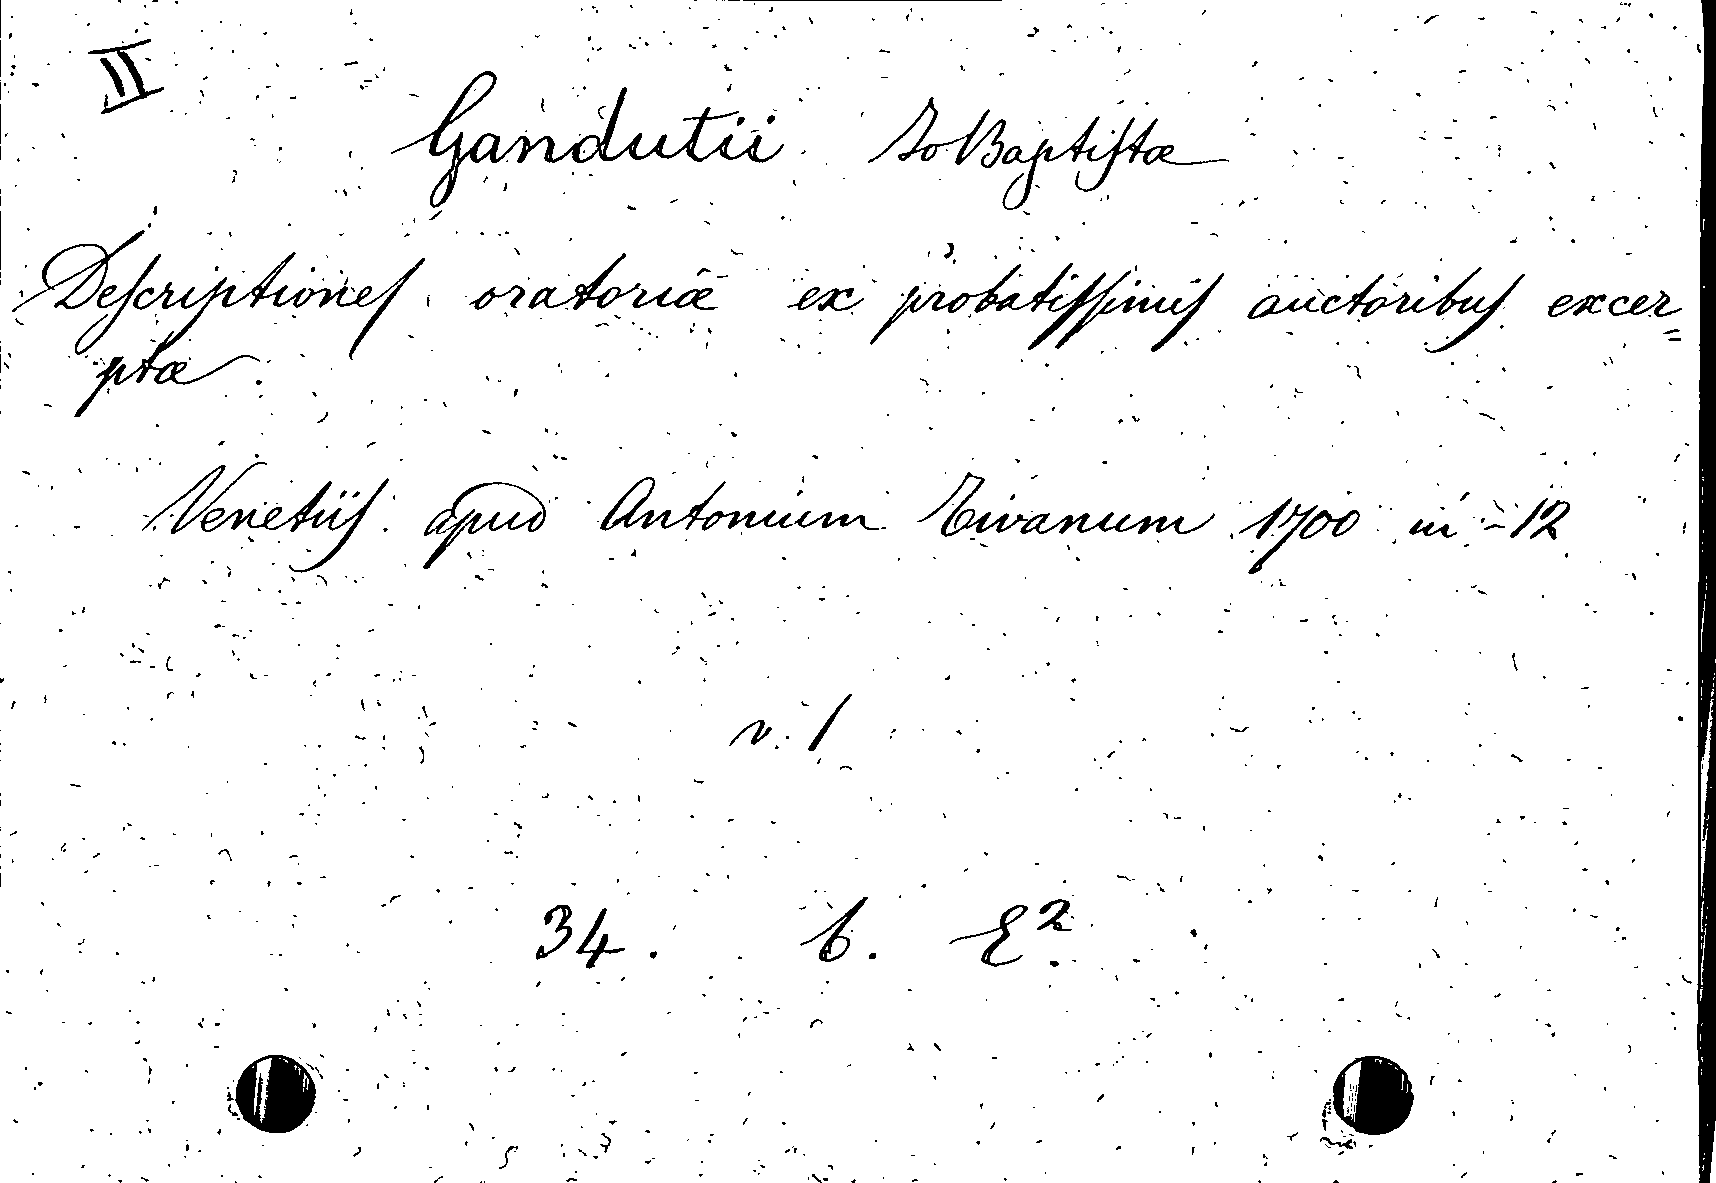 II
Gandutii Jo Baptistæ
Descriptiones oratoriæ ex probatissimis auctoribus excer=
ptæ
Venetiis apud Antonium Tivanum 1700 in-12
v. 1
34. b. E².